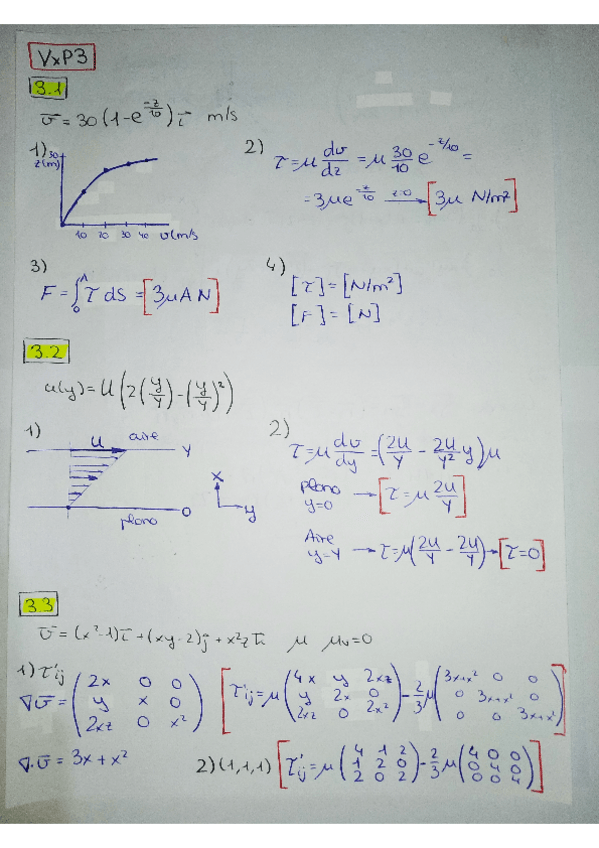 VxP3
3.1
v̄ = 30 (1 - e^(-z/10)) ī m/s
1) 30
z(m)
10 20 30 40 v(m/s
2) τ = μ dv/dz = μ 30/10 e^(-z/10) =
= 3μe^(-z/10) z=0→ [3μ N/m²]
3)
F = ∫₀^A τ dS = [3μA N]
4)
[τ] = [N/m²]
[F] = [N]
3.2
u(y) = U (2(y/Y) - (y/Y)²)
1)
U aire Y
plano O
x
y
2)
τ = μ dv/dy = (2U/Y - 2U/Y² y) μ
plano
y=0 → [τ = μ 2U/Y]
Aire
y=Y → τ = μ(2U/Y - 2U/Y) → [τ=0]
3.3
v̄ = (x²-1)ī + (xy-2)j̄ + x²z k̄ μ μv=0
1) τ'ij
∇v̄ = (2x 0 0
y x 0
2xz 0 x²)
[τ'ij = μ (4x y 2xz
y 2x 0
2xz 0 2x²) - 2/3 μ (3x+x² 0 0
0 3x+x² 0
0 0 3x+x²)]
∇·v̄ = 3x + x²
2) (1,1,1) [τ'ij = μ (4 1 2
1 2 0
2 0 2) - 2/3 μ (4 0 0
0 4 0
0 0 4)]